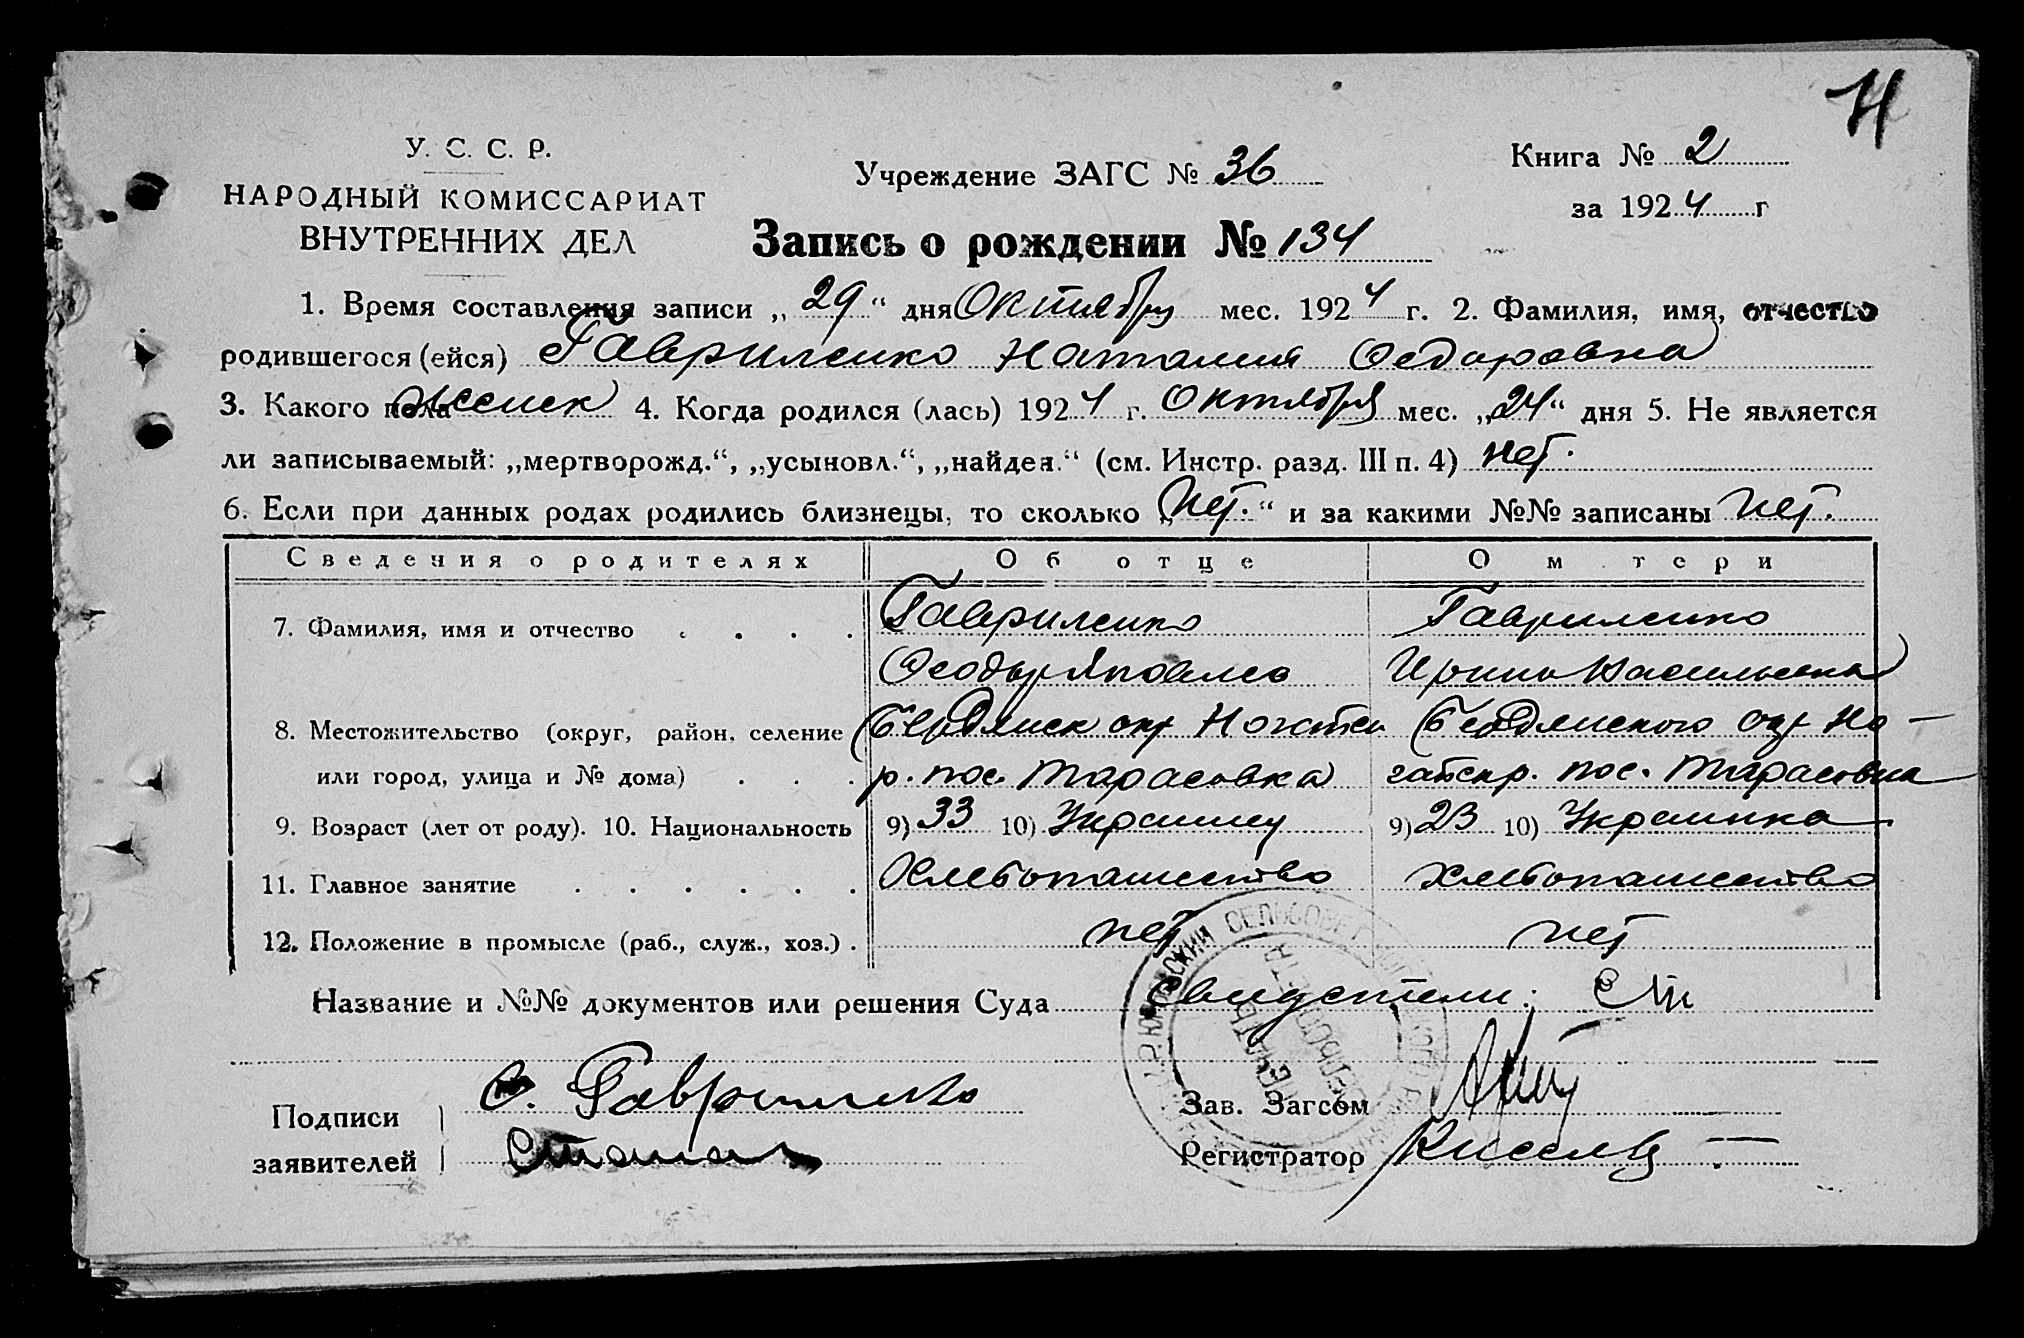 И
У. С. С. Р.
НАРОДНЫЙ КОМИССАРИАТ
ВНУТРЕННИХ ДЕЛ
Учреждение ЗАГС № 36
Книга № 2
за 1924 г
Запись о рождении № 134
1. Время составления записи „29“ дня Октября мес. 1924 г. 2. Фамилия, имя, отчество
родившегося (ейся) Гавриленко Наталия Феодоровна
3. Какого пола женск 4. Когда родился (лась) 1924 г. Октября мес. „24“ дня 5. Не является
ли записываемый: „мертворожд.“, „усыновл.“, „найден.“ (см. Инстр. разд. III п. 4) нет.
6. Если при данных родах родились близнецы, то сколько „нет.“ и за какими №№ записаны нет.
Сведения о родителях Об отце О м тери
7. Фамилия, имя и отчество . . . . Гавриленко Гавриленко
Феодор Яковлев Ирина Васильевна
8. Местожительство (округ, район, селение Бердянск окр Ногайск Бердянского окр Но-
или город, улица и № дома) . . . р. пос. Тарасовка гайск р. пос. Тарасовка
9. Возраст (лет от роду). 10. Национальность 9) 33 10) Украинец 9) 23 10) Украинка
11. Главное занятие . . . . . . Хлебопашество Хлебопашество
12. Положение в промысле (раб., служ., хоз.) . нет нет
Название и №№ документов или решения Суда Свидетели:
Подписи
заявителей
Гавриленко
Зав. Загсом
Регистратор
СЕЛЬСОВЕТ